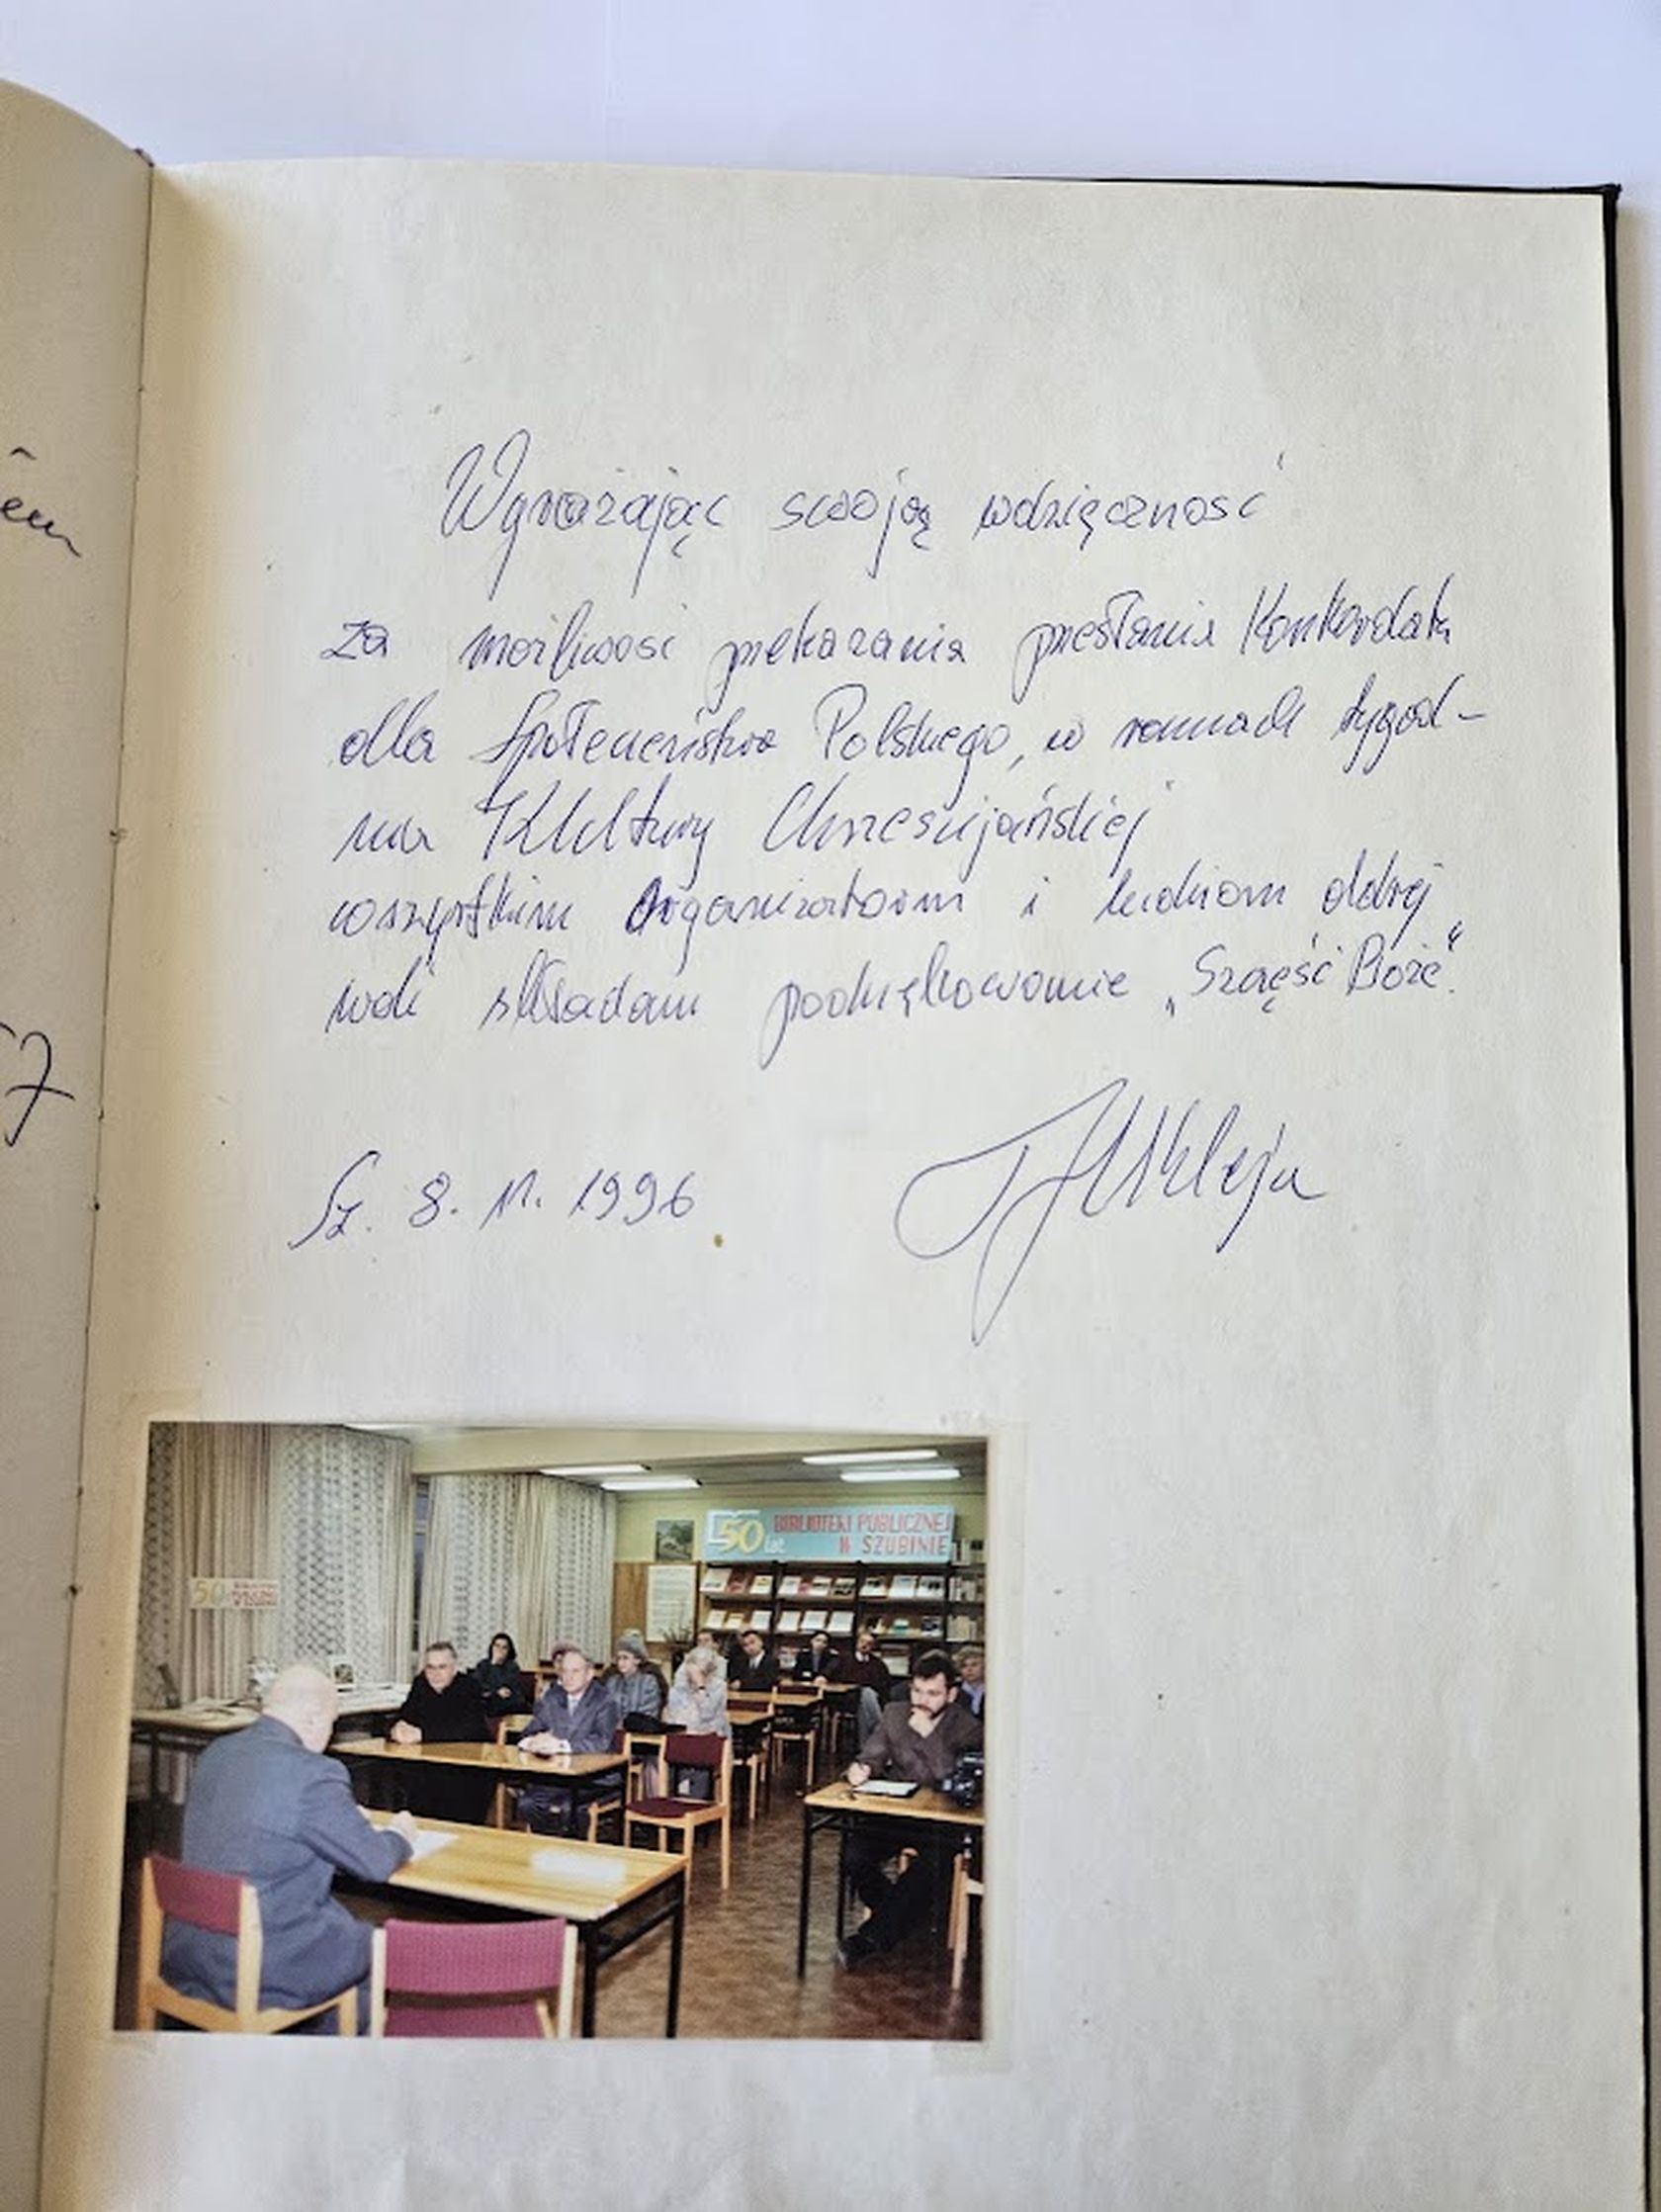 em
7
Wyrażając swoją wdzięczność
za możliwość przekazania przesłania Konkordatu
dla Społeczeństwa Polskiego, w ramach tygod-
nia Kultury Chrześcijańskiej
wszystkim Organizatorom i ludziom dobrej
woli składam podziękowanie „Szczęść Boże".
Sz. 8. 11. 1996
50 lat BIBLIOTEKI PUBLICZNEJ
W SZUBINIE
50